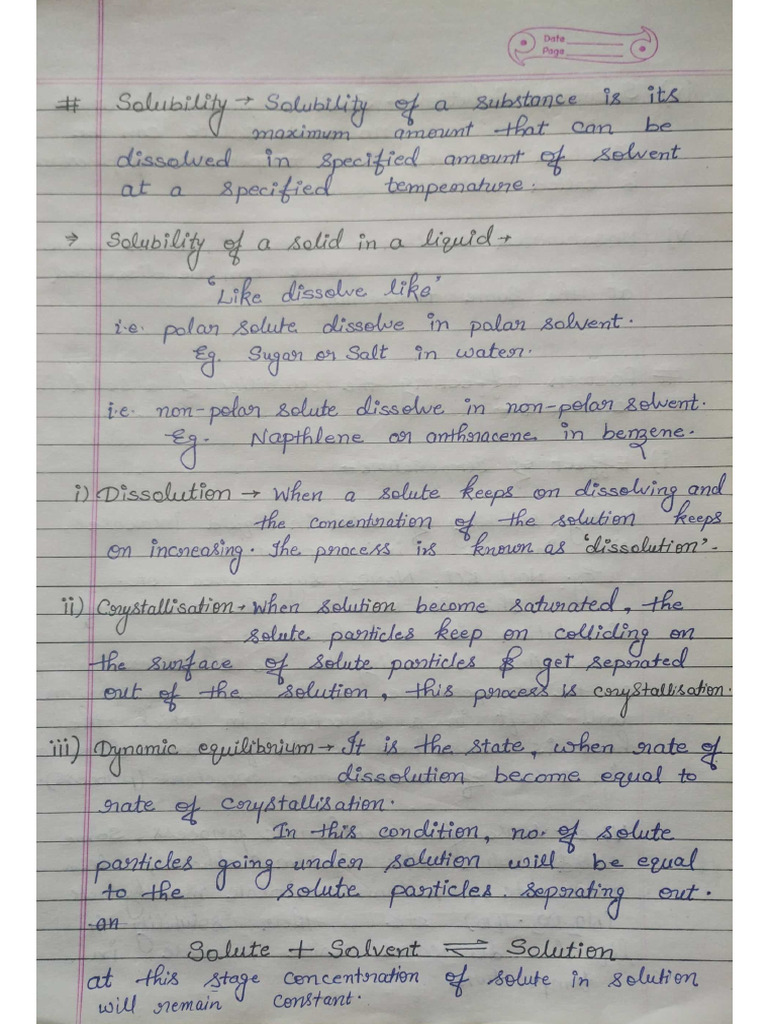 Date
Page
# Solubility → Solubility of a substance is its
maximum amount that can be
dissolved in specified amount of solvent
at a specified temperature.
⇒ Solubility of a solid in a liquid →
'Like dissolve like'
i.e. polar solute dissolve in polar solvent.
Eg. Sugar or Salt in water.
i.e. non-polar solute dissolve in non-polar solvent.
Eg. Napthlene or anthracene in benzene.
i) Dissolution → When a solute keeps on dissolving and
the concentration of the solution keeps
on increasing. The process is known as 'dissolution'.
ii) Crystallisation → When solution become saturated, the
solute particles keep on colliding on
the surface of solute particles & get seprated
out of the solution, this process is crystallisation.
iii) Dynamic equilibrium → It is the state, when rate of
dissolution become equal to
rate of crystallisation.
In this condition, no. of solute
particles going under solution will be equal
to the solute particles seprating out.
an
Solute + Solvent ⇌ Solution
at this stage concentration of solute in solution
will remain constant.